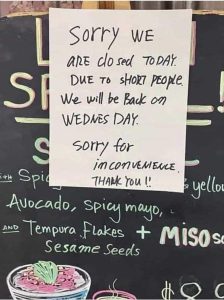 Sorry WE
ARE closed TODAY.
DUE to SHORT PEOPLE.
We will be Back on
WEDNES DAY.
Sorry for
inconvenience.
THANK YOU!!
Avocado, spicy mayo,
AND Tempura Flakes + MISO
Sesame Seeds